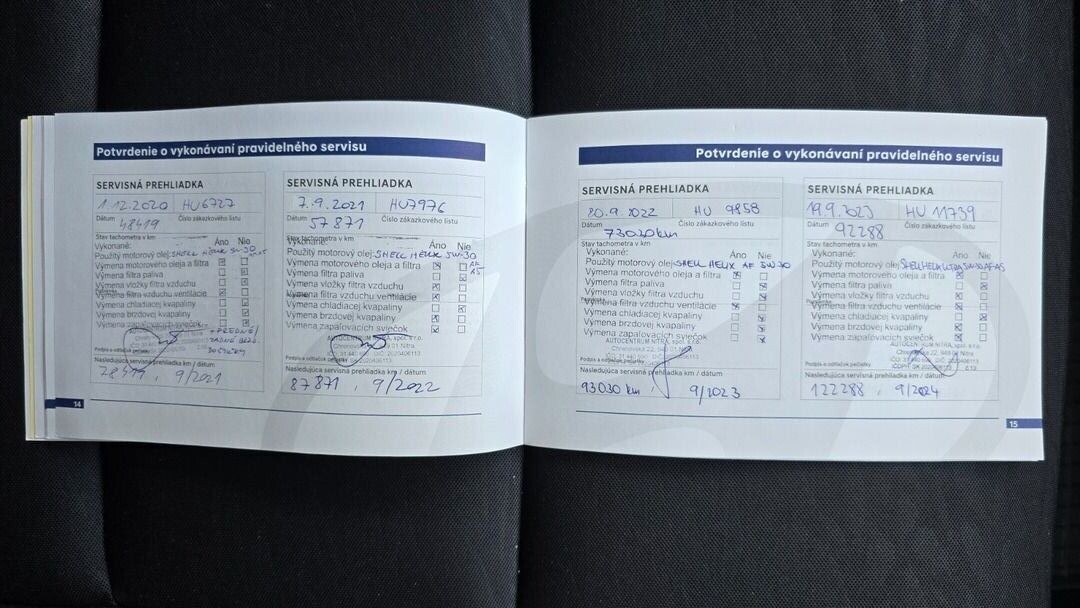 Potvrdenie o vykonávaní pravidelného servisu
SERVISNÁ PREHLIADKA
1.12.2020 HU6727
Dátum Číslo zákazkového listu
48419
Stav tachometra v km
Vykonané: Áno Nie
Použitý motorový olej: SHELL HELIX 5W-30
Výmena motorového oleja a filtra
Výmena filtra paliva
Výmena vložky filtra vzduchu
Výmena filtra vzduchu ventilácie
Výmena chladiacej kvapaliny
Výmena brzdovej kvapaliny
Výmena zapaľovacích sviečok
+PREDNÉ/
Podpis a odtlačok pečiatky
Nasledujúca servisná prehliadka km / dátum
78419, 9/2021
14
SERVISNÁ PREHLIADKA
7.9.2021 HU7976
Dátum Číslo zákazkového listu
57871
Stav tachometra v km
Vykonané: Áno Nie
Použitý motorový olej: SHELL HELIX 5W-30
Výmena motorového oleja a filtra
Výmena filtra paliva
Výmena vložky filtra vzduchu
Výmena filtra vzduchu ventilácie
Výmena chladiacej kvapaliny
Výmena brzdovej kvapaliny
Výmena zapaľovacích sviečok
AUTOCENTRUM NITRA, spol. s r.o.
Podpis a odtlačok pečiatky
Nasledujúca servisná prehliadka km / dátum
87871, 9/2022
Potvrdenie o vykonávaní pravidelného servisu
SERVISNÁ PREHLIADKA
20.9.2022 HU 9858
Dátum Číslo zákazkového listu
73020km
Stav tachometra v km
Vykonané: Áno Nie
Použitý motorový olej: SHELL HELIX AF 5W-30
Výmena motorového oleja a filtra
Výmena filtra paliva
Výmena vložky filtra vzduchu
Výmena filtra vzduchu ventilácie
Výmena chladiacej kvapaliny
Výmena brzdovej kvapaliny
Výmena zapaľovacích sviečok
AUTOCENTRUM NITRA, spol. s r.o.
Chrenovská 22, 949 01 Nitra
Podpis a odtlačok pečiatky
Nasledujúca servisná prehliadka km / dátum
93030 km 9/2023
SERVISNÁ PREHLIADKA
19.9.2023 HU 11739
Dátum Číslo zákazkového listu
92288
Stav tachometra v km
Vykonané: Áno Nie
Použitý motorový olej: SHELL HELIX ULTRA 5W30 AF A5
Výmena motorového oleja a filtra
Výmena filtra paliva
Výmena vložky filtra vzduchu
Výmena filtra vzduchu ventilácie
Výmena chladiacej kvapaliny
Výmena brzdovej kvapaliny
Výmena zapaľovacích sviečok
AUTOCENTRUM NITRA, spol. s r.o.
Chrenovská 22, 949 01 Nitra
Podpis a odtlačok pečiatky
Nasledujúca servisná prehliadka km / dátum
122288, 9/2024
15